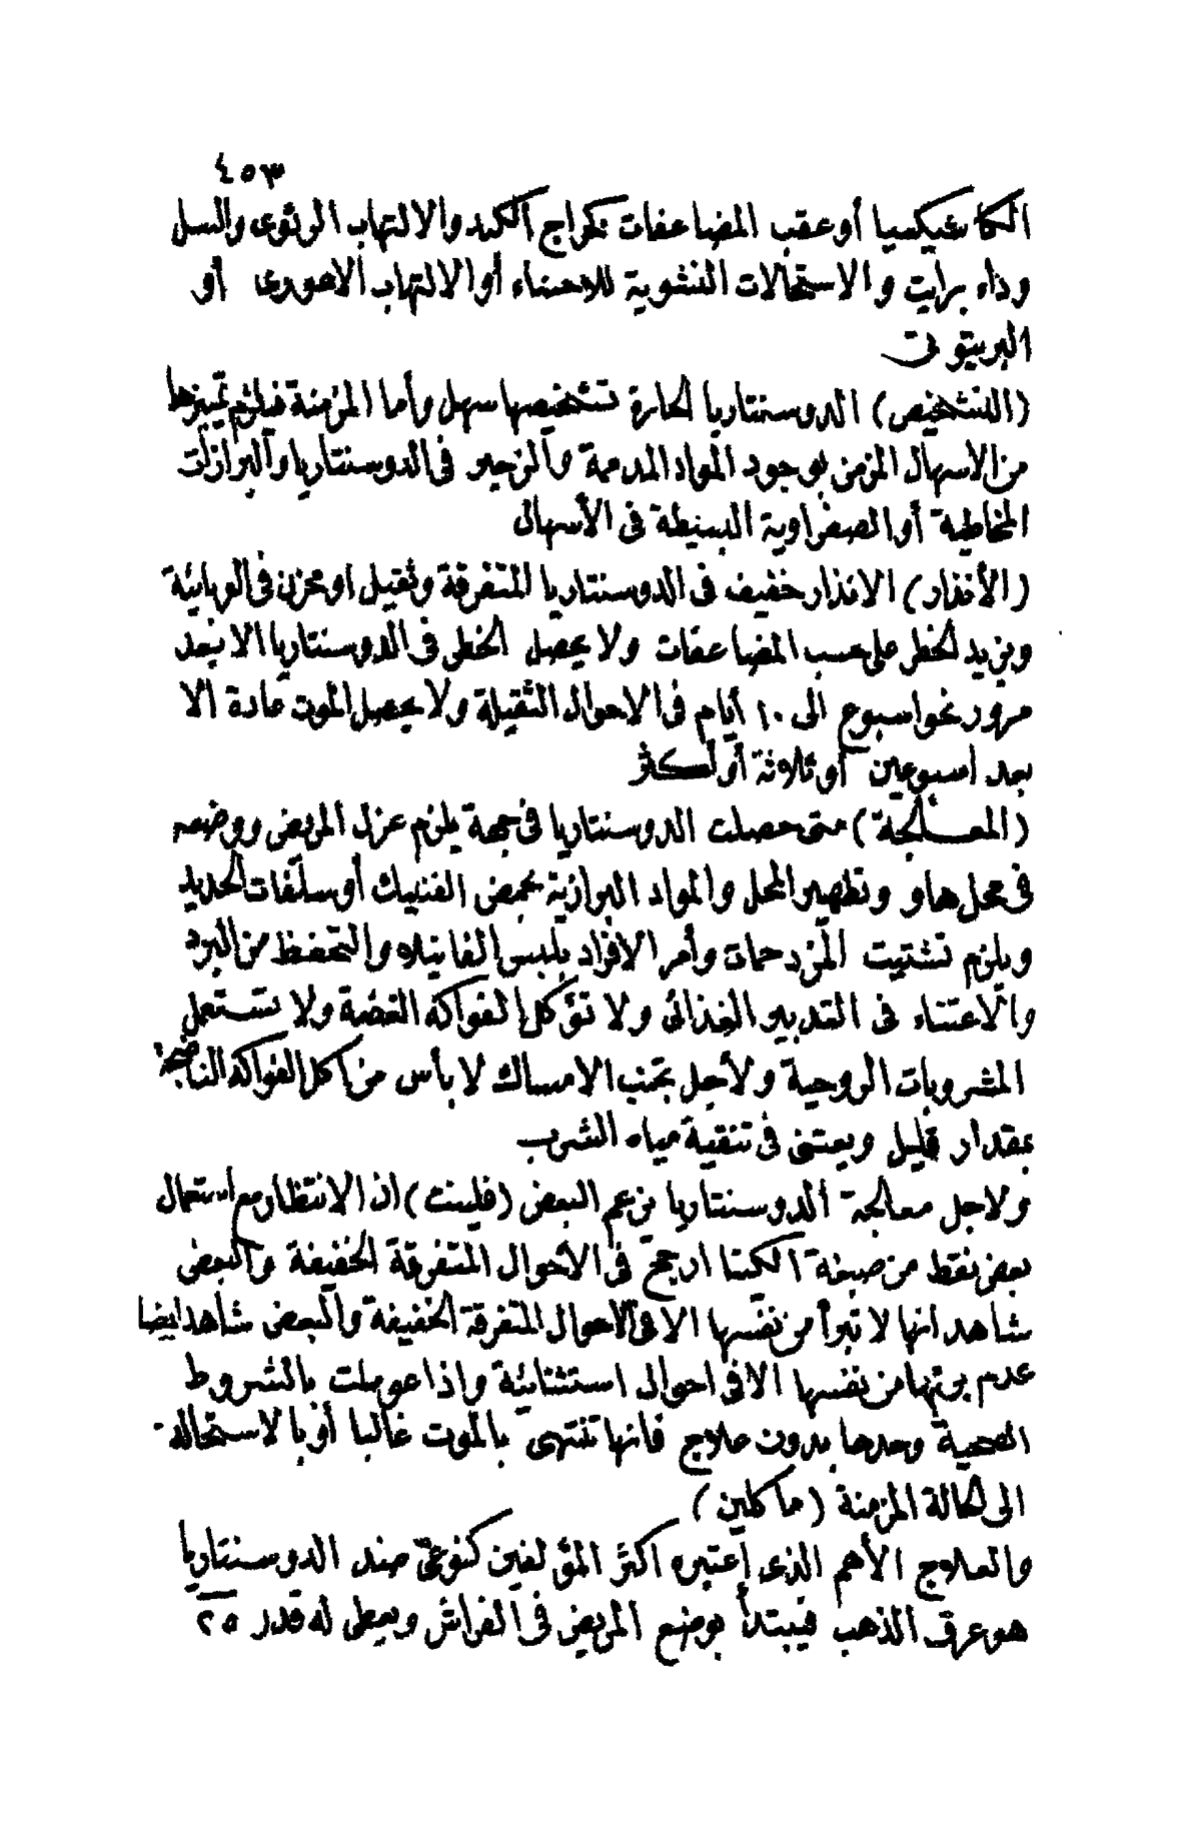 ٤٥٣
الكاشيكسيا أو عقب المضاعفات كخراج الكبد والالتهاب الرئوى والسل
وداء برايت والاستحالات النشوية للاحشاء أو الالتهاب الاعورى أو
البريتونى
(التشخيص) الدوسنتاريا الحارة تشخيصها سهل وأما المزمنة فيلزم تمييزها
من الاسهال المزمن بوجود المواد المدممة والزحير فى الدوسنتاريا والبرازات
المخاطية أو الصفراوية البسيطة فى الأسهال
(الأنذار) الانذار خفيف فى الدوسنتاريا المتفرقة وثقيل او محزن فى الوبائية
ويزيد الخطر على حسب المضاعفات ولا يحصل الخطر فى الدوسنتاريا الا بعد
مرور نحو اسبوع الى ١٠ أيام فى الاحوال الثقيلة ولا يحصل الموت عادة الا
بعد اسبوعين أو ثلاثة أو أكثر
(المعالجة) متى حصلت الدوسنتاريا فى جهة يلزم عزل المريض ووضعه
فى محل هاو وتطهير المحل والمواد البرازية بحمض الفنيك أو سلفات الحديد
ويلزم تشتيت المزدحمات وأمر الافراد بلبس الفانيلاه والتحفظ من البرد
والاعتناء فى التدبير الغذائى ولا تؤكل الفواكه الفضة ولا تستعمل
المشروبات الروحية ولأجل تجنب الامساك لا بأس من اكل الفواكه الناضجة
بمقدار قليل ويعتنى فى تنقية مياه الشرب
ولاجل معالجة الدوسنتاريا يزعم البعض (فلينت) ان الانتظار مع استعمال
بعض نقط من صبغة الكتا ارجح فى الأحوال المتفرقة الخفيفة والبعض
شاهد انها لا تبرأ من نفسها الا فى الاحوال المتفرقة الخفيفة والبعض شاهد ايضا
عدم برئها من نفسها الا فى احوال استثنائية واذا عوملت بالشروط
الصحية وحدها بدون علاج فانها تنتهى بالموت غالبا أو بالاستحالة
الى الحالة المزمنة (ماكلين)
والعلاج الأهم الذى إعتبره اكثر المؤلفين كنوعىّ ضد الدوسنتاريا
هو عرق الذهب فيبتدأ بوضع المريض فى الفراش ويعطى له قدر ٢٥